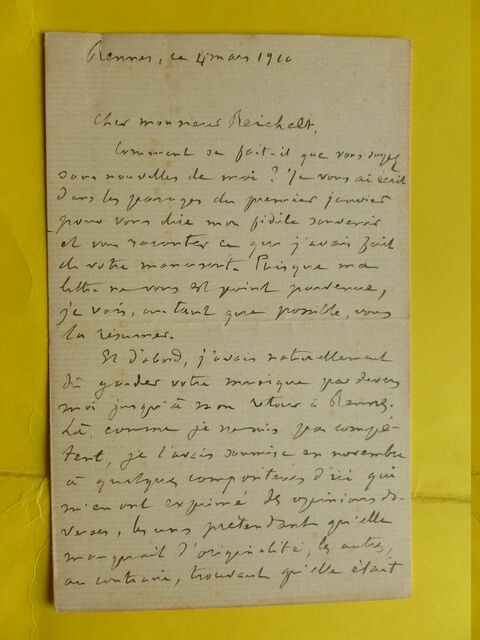 Rennes, ce 4 mars 1910
Cher monsieur Reichelt,
Comment se fait-il que vous soyez
sans nouvelles de moi ? Je vous ai écrit
dans les parages du premier janvier
pour vous dire mon fidèle souvenir
et vous raconter ce que j'avais fait
de votre manuscrit. Puisque ma
lettre ne vous est point parvenue,
je vais, autant que possible, vous
la résumer.
Et d'abord, j'avais naturellement
dû garder votre musique par devers
moi jusqu'à mon retour à Rennes.
Là, comme je ne suis pas compé-
tent, je l'avais soumise en novembre
à quelques compositeurs d'ici qui
m'en ont exprimé des opinions di-
verses, les uns prétendant qu'elle
manquait d'originalité, les autres,
au contraire, trouvant qu'elle était